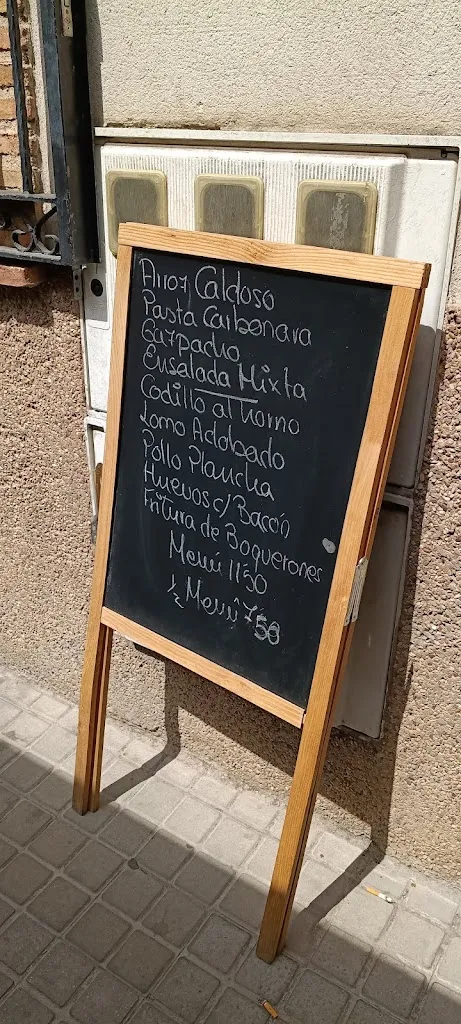 Arroz Caldoso
Pasta Carbonara
Gazpacho
Ensalada Mixta
Codillo al horno
Lomo Adobado
Pollo Plancha
Huevos c/ Bacón
Fritura de Boquerones
Menú 11'50
½ Menú 7'50